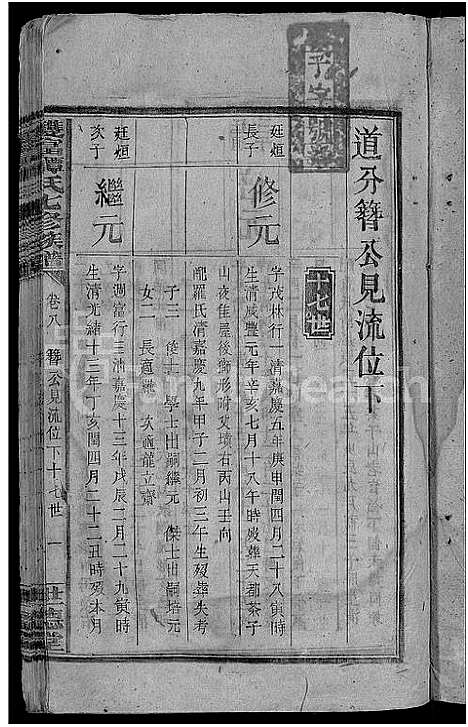 平字號
道牙簪公見流位下
十七世
廷烜
長子
修元
字茂林行一清嘉慶五年庚申閏四月二十八寅時
生清咸豐元年辛亥七月十八午時歿葬天都茶子
山夜隹屋後獅形附父墳右丙山壬向
配羅氏清嘉慶九年甲子二月初三午生歿葬失考
子三 俊士 學士出嗣繼元 傑士出嗣培元
女二 長適 次適龍立齋
廷烜
次子
繼元
字週富行三清嘉慶十三年戊辰二月二十九寅時
生清光緒十三年丁亥閏四月二十二丑時歿本月
氏七修族譜
卷八 簪公見流位下十七世 一